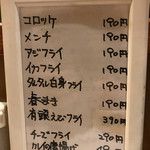 コロッケ 190円
メンチ 190円
アジフライ 190円
イカフライ 190円
タルタル白身フライ 190円
春巻き 190円
有頭えびフライ 390円
チーズフライ 290円
カレイ唐揚げ